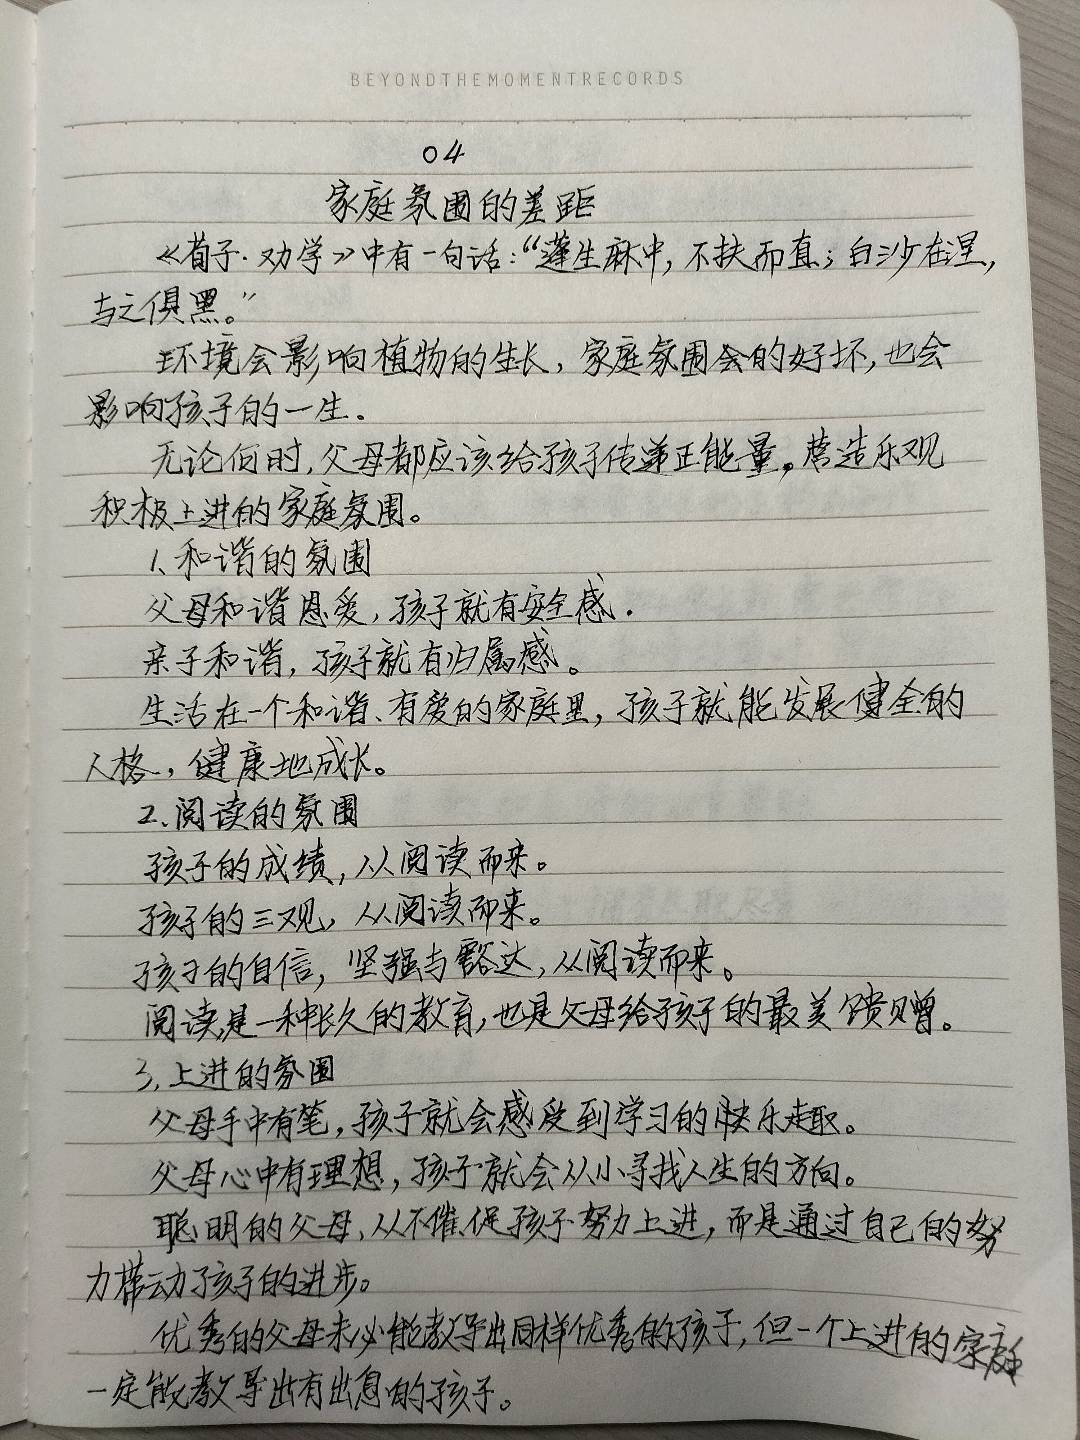 BEYONDTHEMOMENTRECORDS
04
家庭氛围的差距
《荀子·劝学》中有一句话：“蓬生麻中，不扶而直；白沙在涅，
与之俱黑。”
环境会影响植物的生长，家庭氛围会的好坏，也会
影响孩子的一生.
无论何时，父母都应该给孩子传递正能量，营造乐观
积极上进的家庭氛围。
1、和谐的氛围
父母和谐恩爱，孩子就有安全感.
亲子和谐，孩子就有归属感。
生活在一个和谐、有爱的家庭里，孩子就能发展健全的
人格，健康地成长。
2、阅读的氛围
孩子的成绩，从阅读而来。
孩子的三观，从阅读而来。
孩子的自信，坚强与豁达，从阅读而来。
阅读，是一种长久的教育，也是父母给孩子的最美馈赠。
3，上进的氛围
父母手中有笔，孩子就会感受到学习的快乐趣。
父母心中有理想，孩子就会从小寻找人生的方向。
聪明的父母，从不催促孩子努力上进，而是通过自己的努
力带动孩子的进步。
优秀的父母未必能教导出同样优秀的孩子，但一个上进的家庭
一定能教导出有出息的孩子。